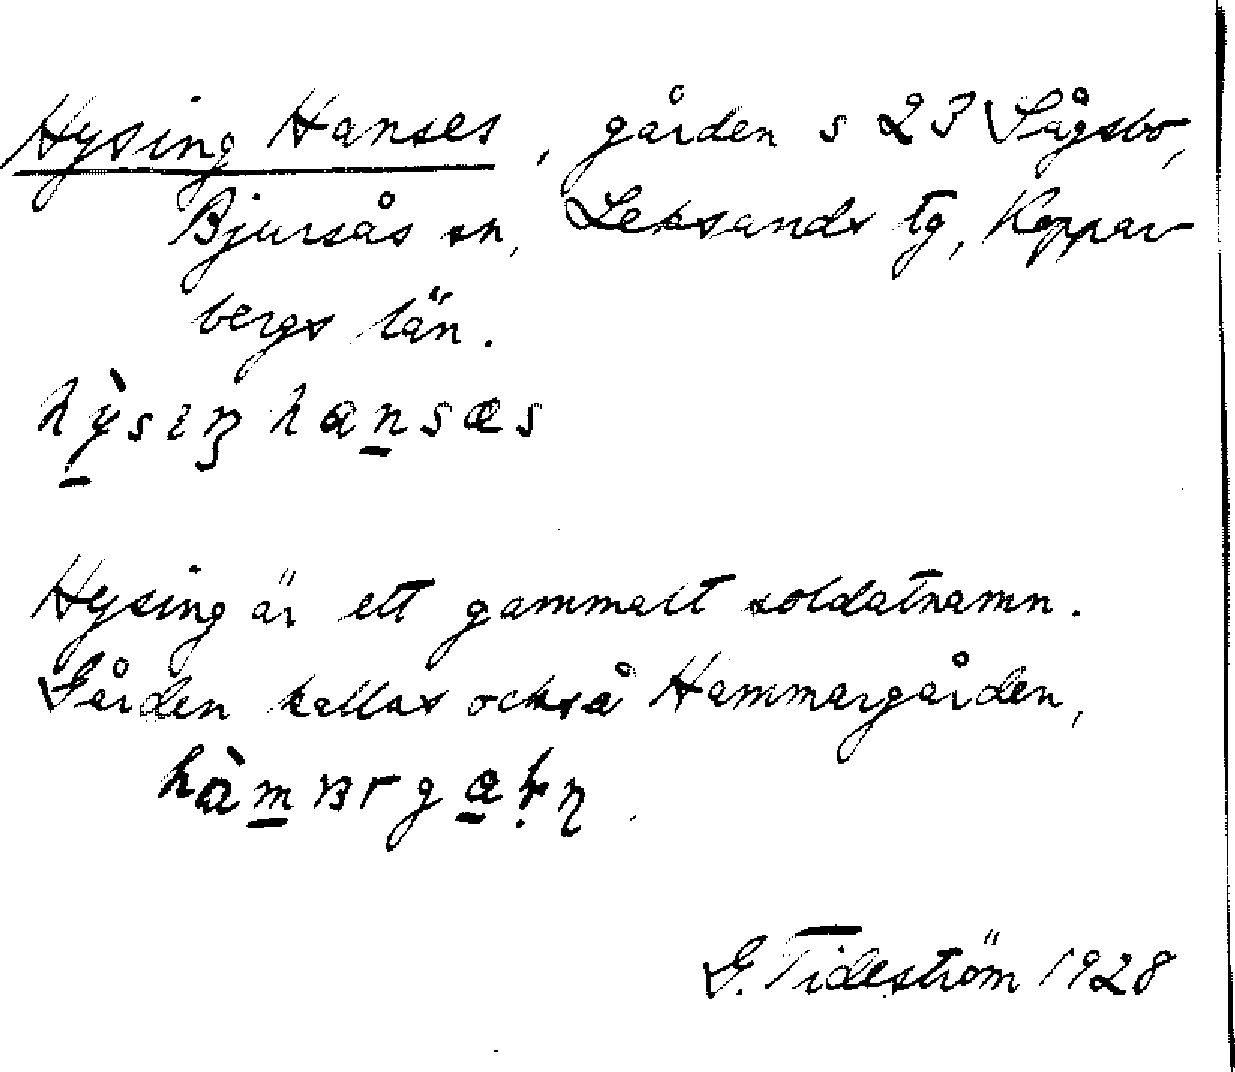 Hysing Hanses, gården s 23 Sågsbo,
Bjursås sn, Leksands tg, Koppar
bergs län.
hỳsiŋ hansæs
Hysing är ett gammalt soldatnamn.
Gården kallas också Hammargården,
G. Tideström 1928